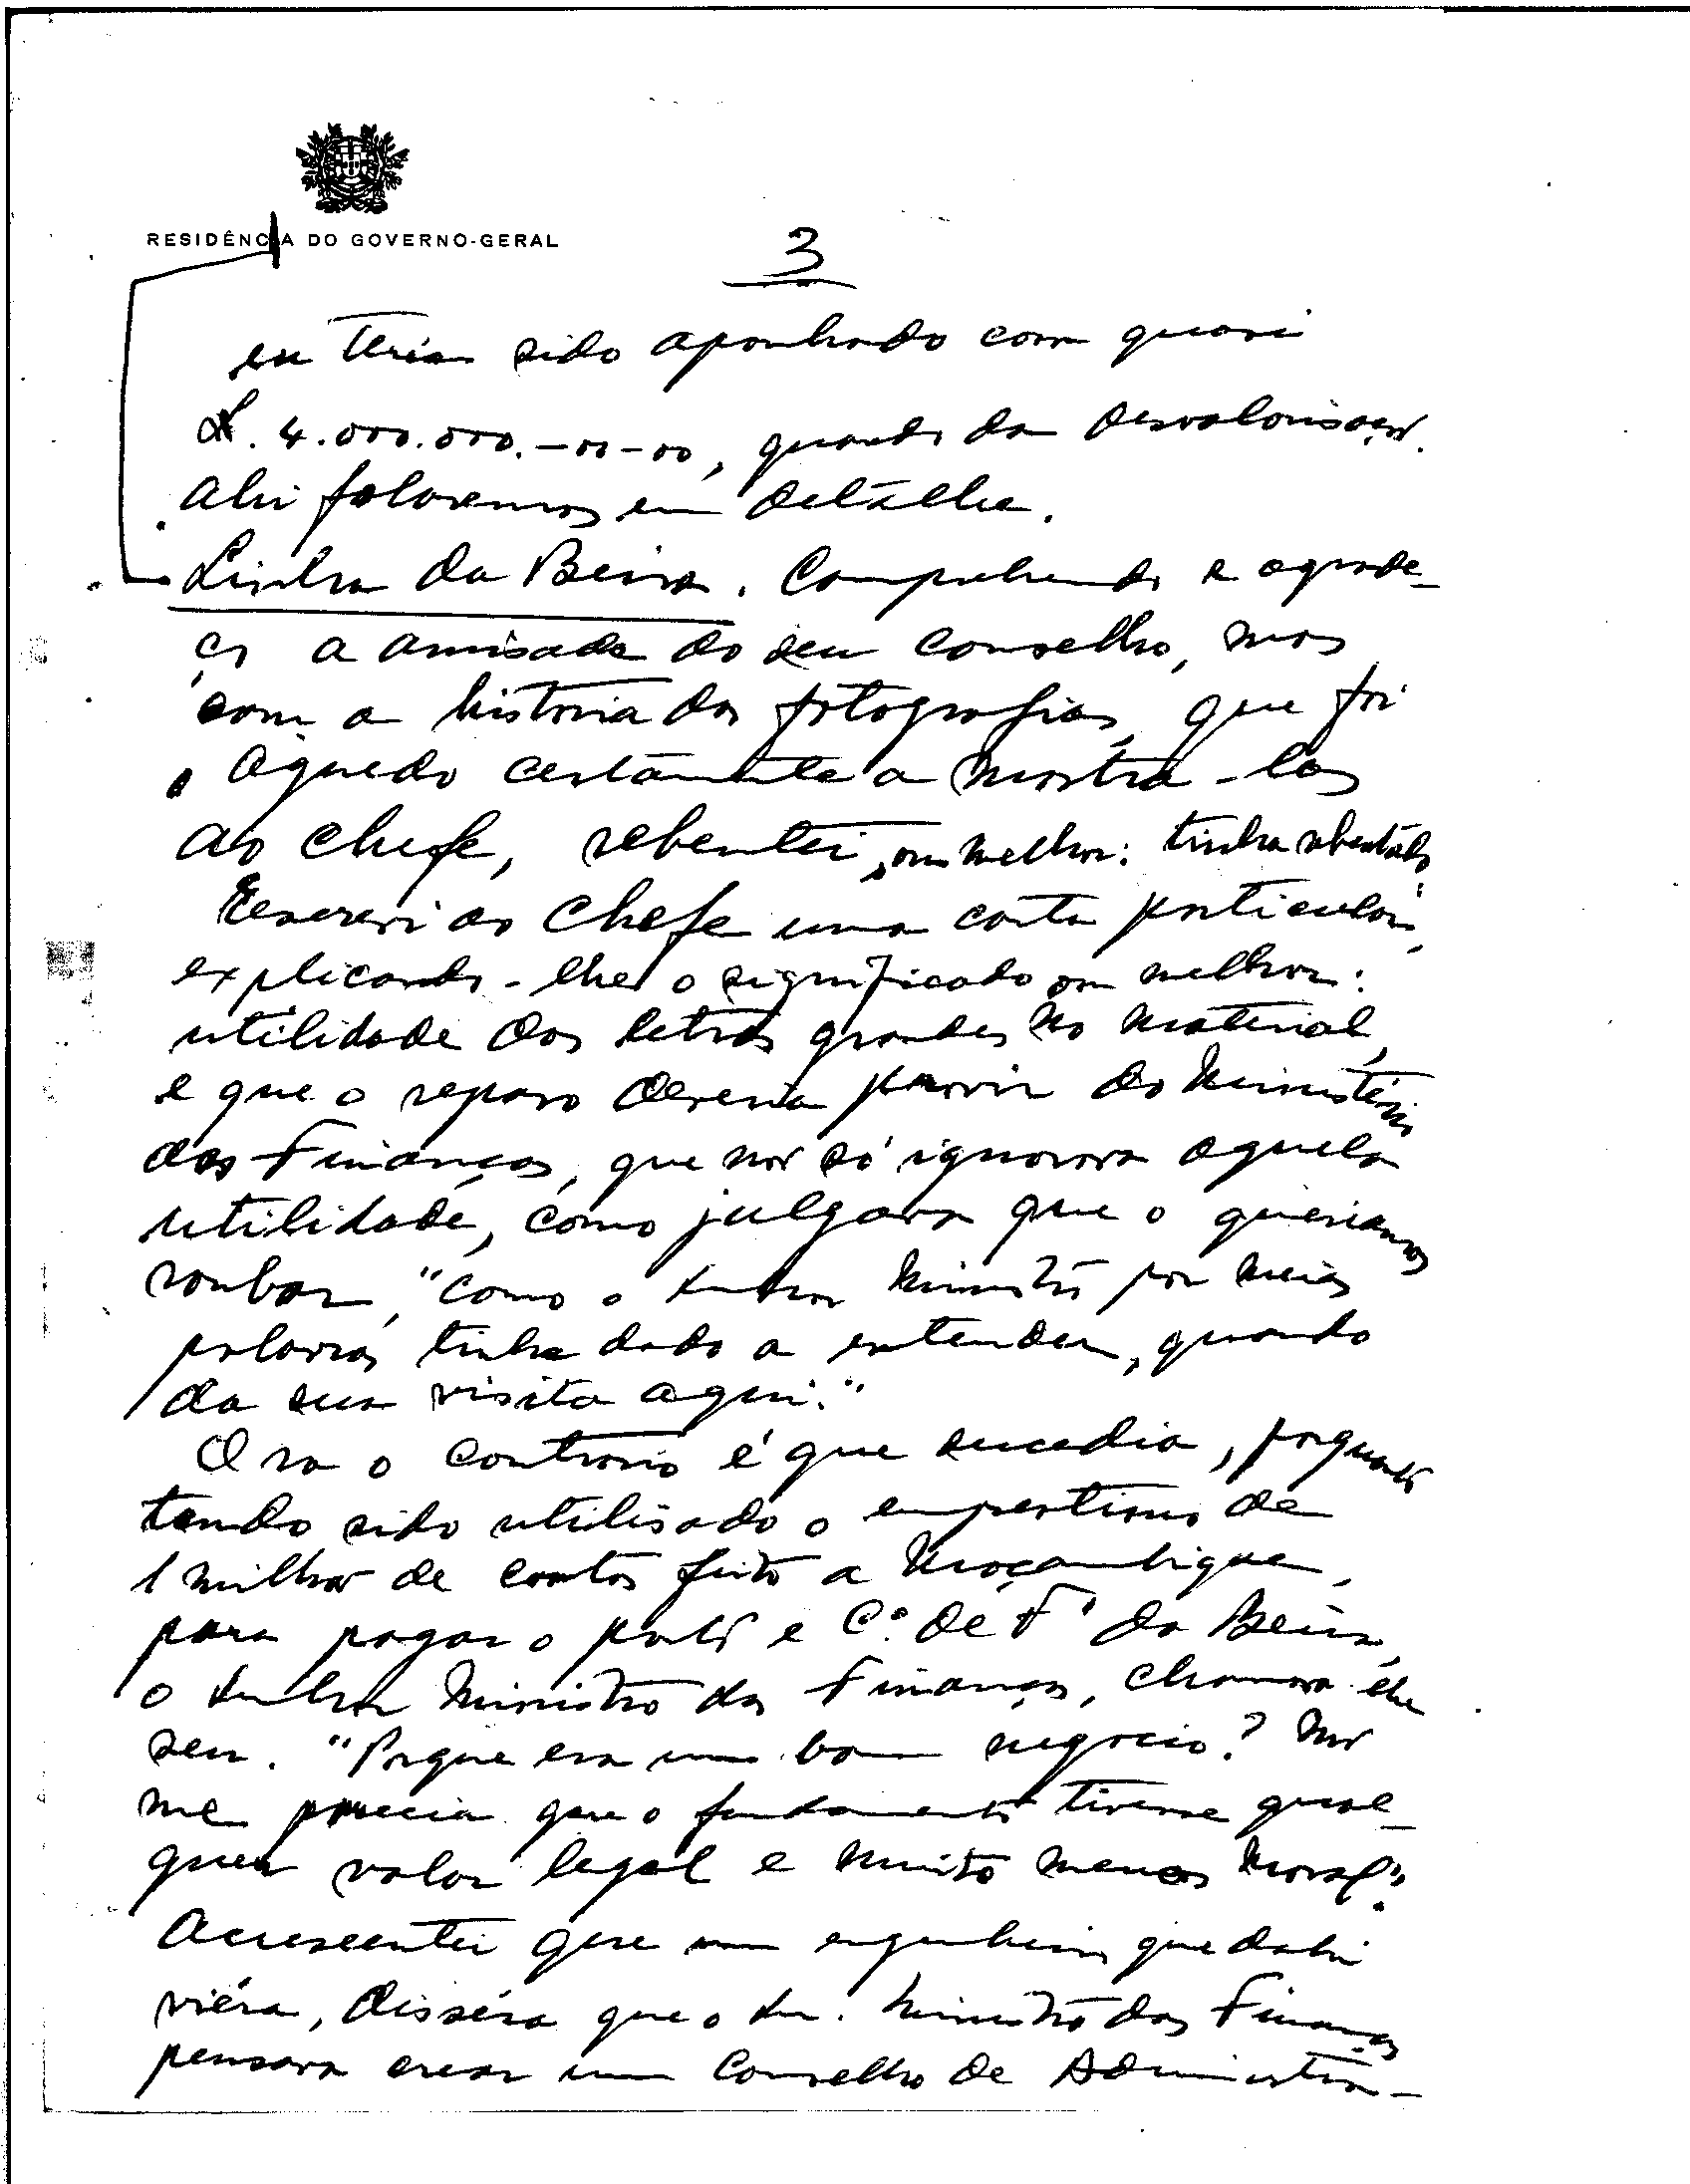 RESIDÊNCIA DO GOVERNO-GERAL
3
eu teria sido apanhado com quasi
£. 4.000.000.-00-00, quando da desvalorisação.
Ahi falaremos em detalhe.
Linha da Beira. Comprehendo e agrade-
ço a amisade do seu conselho, mas
com a historia das fotografias, que foi
o Aguedo certamente a mostra-las
ao chefe, rebentei, ou melhor: tinha rebentado
Escrevi ao Chefe uma carta particular,
explicando-lhe o significado ou melhor:
utilidade das letras grandes no material,
e que o reparo deveria provir do Ministério
das Finanças, que não só ignorava aquela
utilidade, como julgava que o queriamos
roubar, "como o senhor Ministro por meias
palavras tinha dado a entender, quando
da sua visita aqui."
Ora o contrario é que sucedia, porquanto
tendo sido utilisado o emprestimo de
1 milhão de contos feito a Moçambique,
para pagar o porto e C.º de Fº da Beira,
o senhor Ministro das Finanças, chamara-lhe
seu. "Porque era um bom negocio? Não
me parecia que o fundamento tivesse qual-
quer valor legal e muito menos moral".
Acrescentei que um engenheiro que dahi
viéra, disséra que o Sr. Ministro das Finanças
pensara crear um Conselho de Administra-